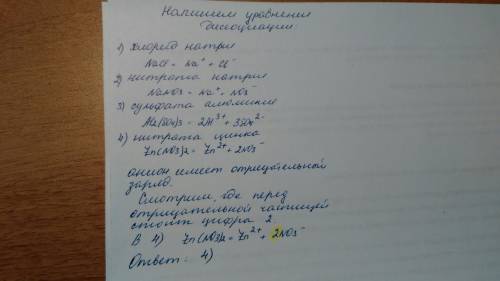 Напишем уравнения
диссоциации:
1) хлорид натрия
NaCl = Na⁺ + Cl⁻
2) нитрата натрия
NaNO3 = Na⁺ + NO3⁻
3) сульфата алюминия
Al2(SO4)3 = 2Al³⁺ + 3SO4²⁻
4) нитрата цинка
Zn(NO3)2 = Zn²⁺ + 2NO3⁻
анион имеет отрицательный
заряд.
Смотрим, где перед
отрицательной частицей
стоит цифра 2.
В 4) Zn(NO3)2 = Zn²⁺ + 2NO3⁻
Ответ: 4)